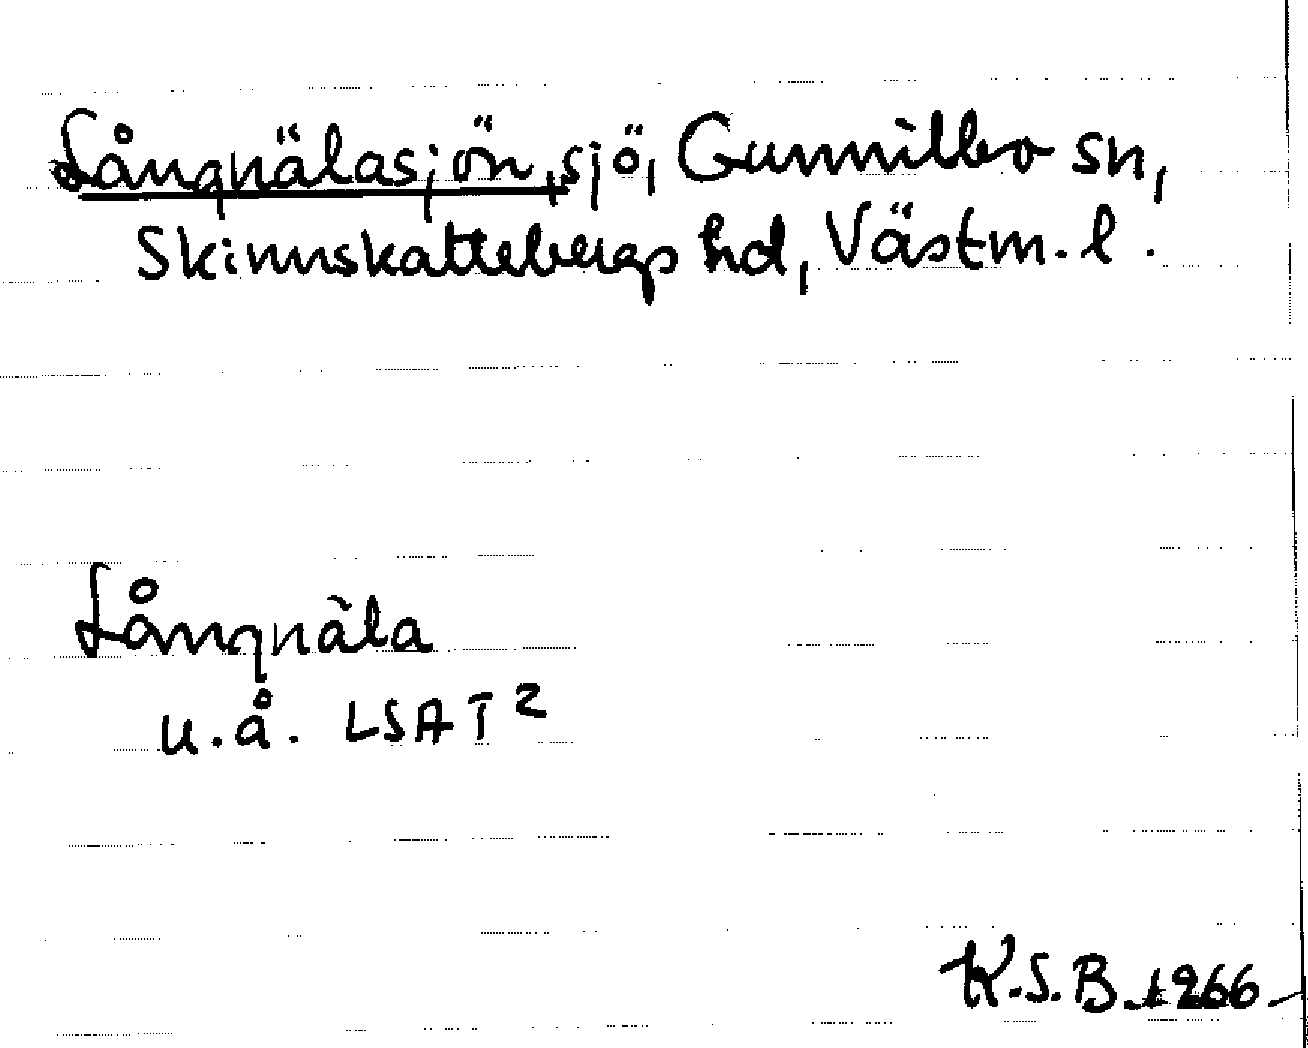 Långnälasjön, sjö, Gunnilbo sn,
Skinnskattebergs hd, Västm. l.
Långnäla
u.å. LSA T 2
K.S.B. 1966